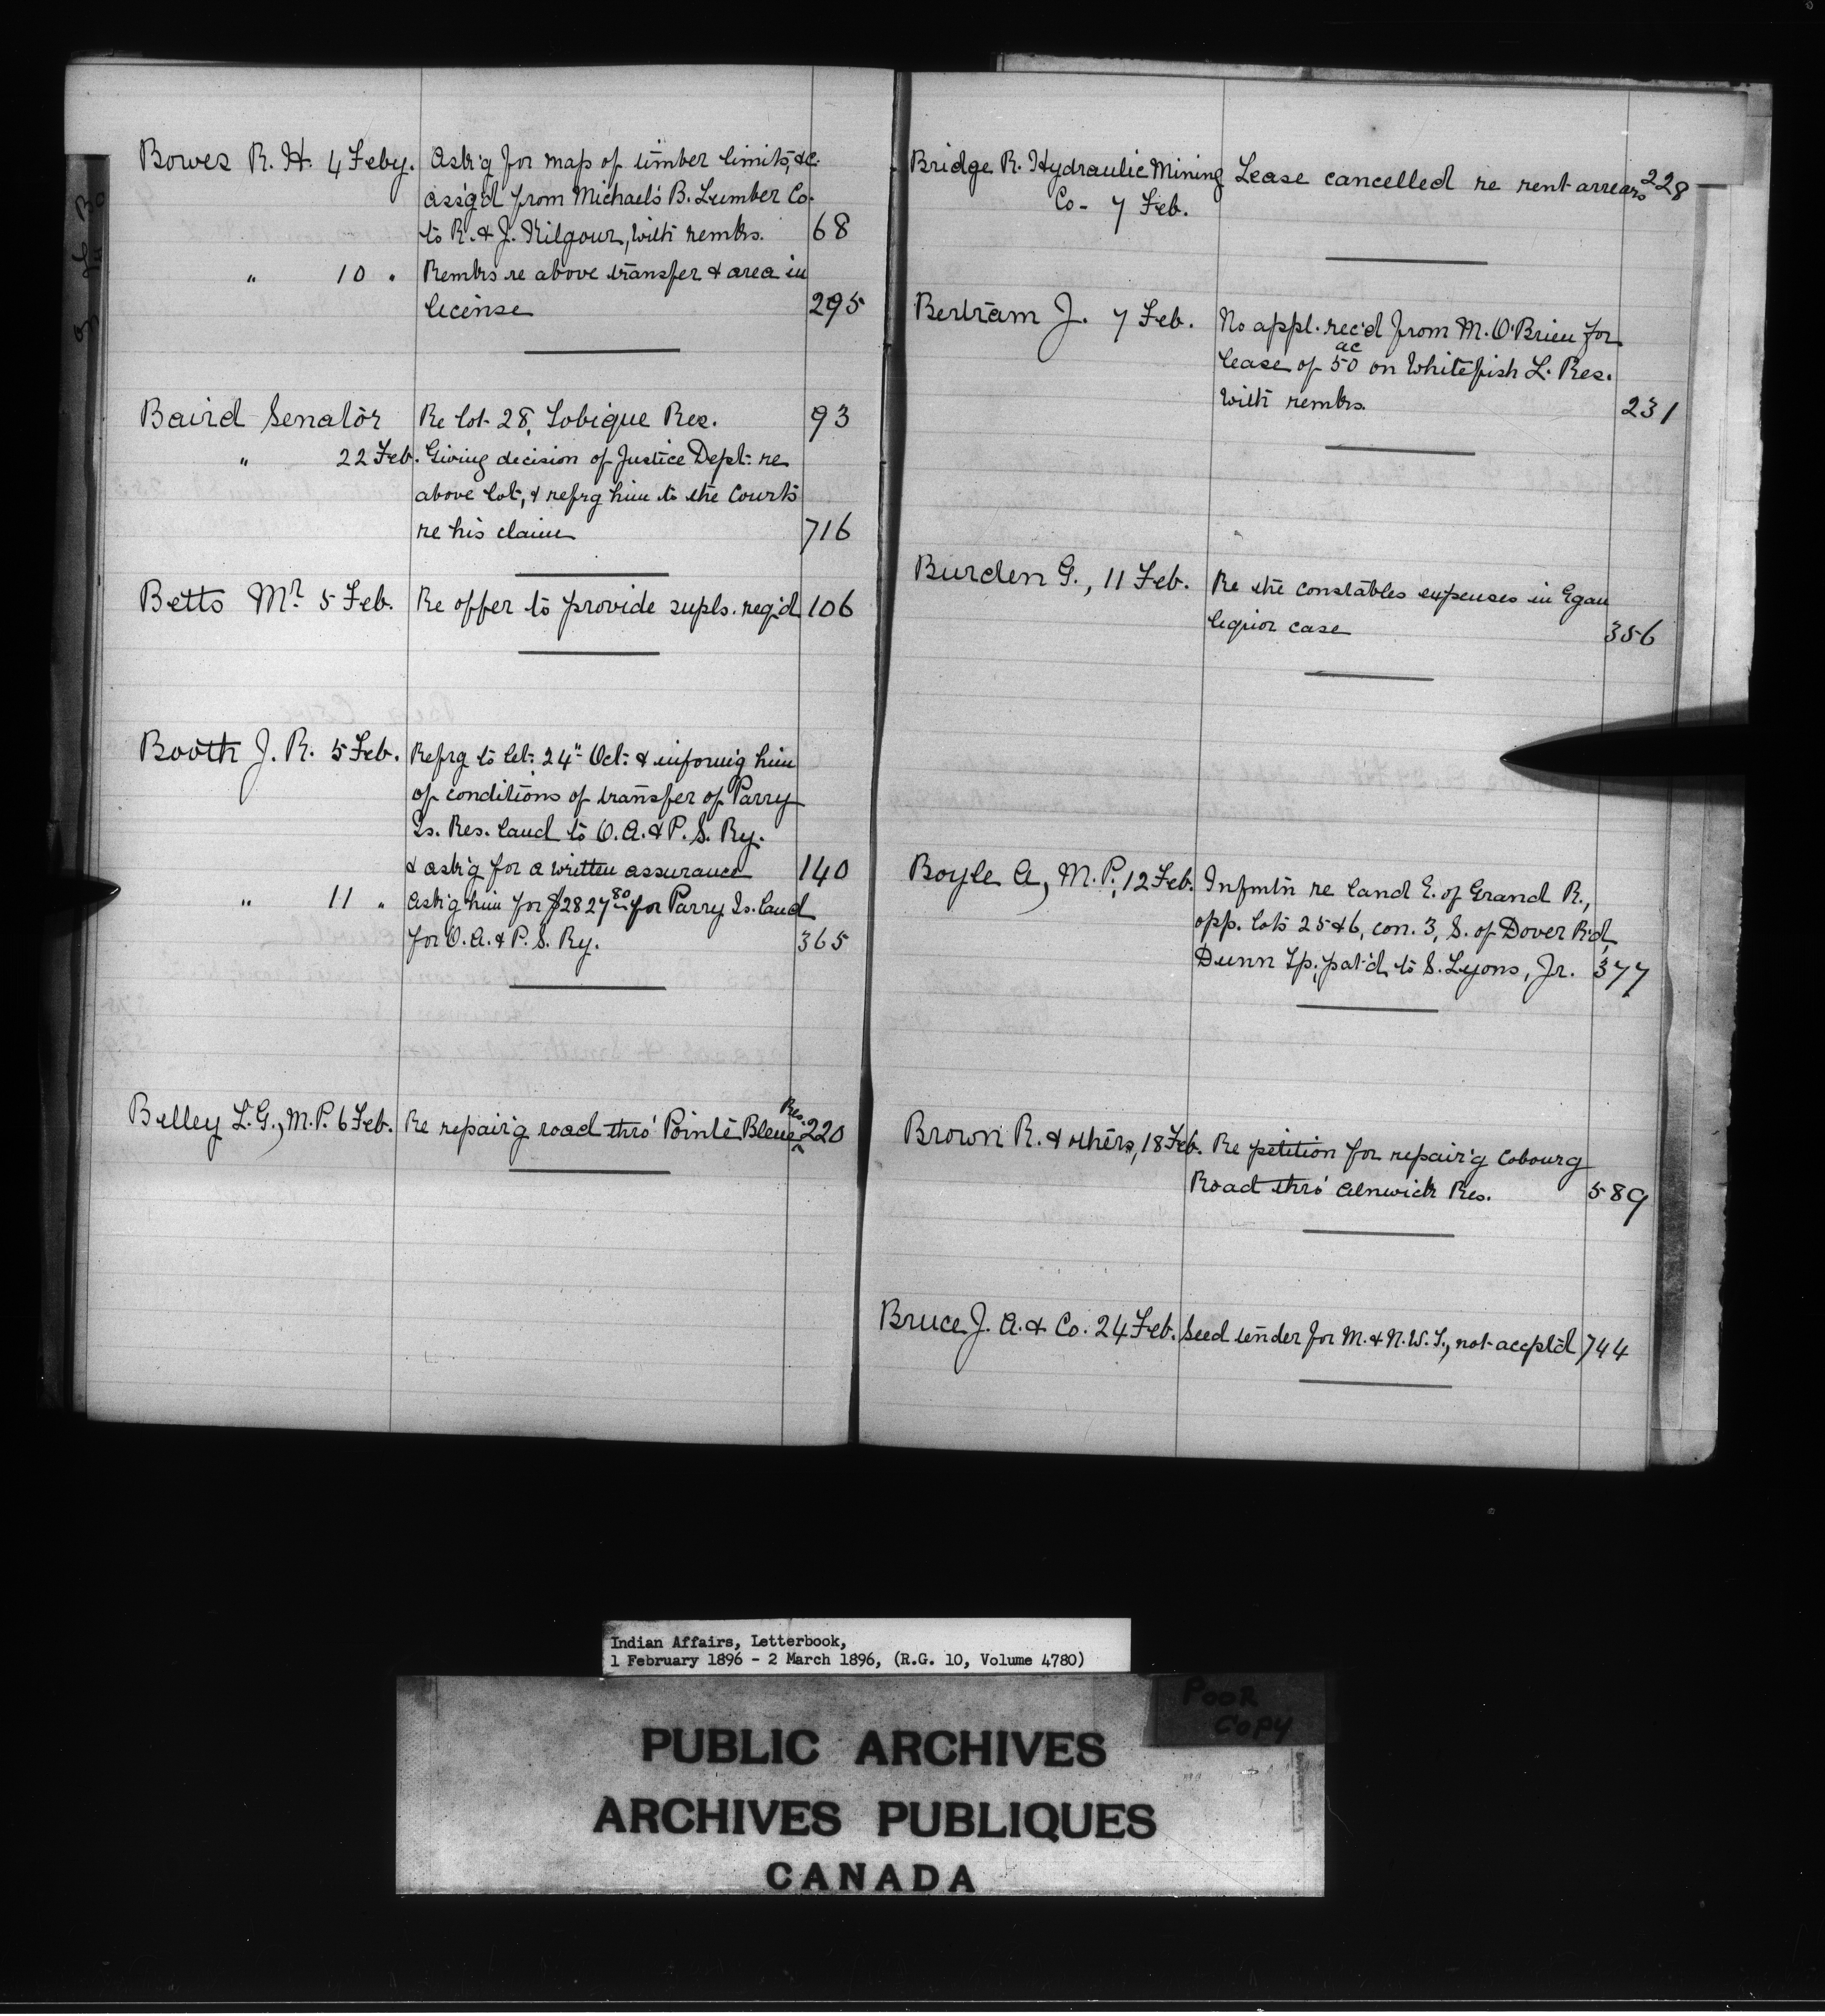 Bowes R. H. 4 Feby. Ask'g for map of timber limits, &c.
ass'g'd from Michael's B. Lumber Co.
to R. & J. Kilgour, with remks. 68
" 10 " Remks re above transfer & area in
license 295
Baird Senator Re lot 28, Tobique Res. 93
" 22 Feb. Giving decision of Justice Dept. re
above lot, & refrg him to the Courts
re his claim 716
Betts Mr. 5 Feb. Re offer to provide supls. req'd 106
Booth J. R. 5 Feb. Refrg to let. 24" Oct. & inform'g him
of conditions of transfer of Parry
Is. Res. land to O. A. & P. S. Ry.
& ask'g for a written assurance 140
" 11 " Ask'g him for $2827 80 for Parry Is. land
for O. A. & P. S. Ry. 365
Belley L. G., M. P. 6 Feb. Re repair'g road thro' Pointe Bleue Res. 220
Bridge R. Hydraulic Mining Lease cancelled re rent arrears 228
Co- 7 Feb.
Bertram J. 7 Feb. No appl. rec'd from M. O'Brien for
lease of 50 ac on Whitefish L. Res.
with remks. 231
Burden G., 11 Feb. Re the constables expenses in Egan
liquor case 356
Boyle A, M. P., 12 Feb. Infmtn re land E. of Grand R.,
opp. lots 25 & 6, con. 3, S. of Dover R'd,
Dunn Tp., pat'd to S. Lyons, Jr. 377
Brown R. & others, 18 Feb. Re petition for repair'g Cobourg
Road thro' Alnwick Res. 589
Bruce J. A. & Co. 24 Feb. Seed tender for M. & N. W. T., not accpt'd 744
Indian Affairs, Letterbook,
1 February 1896 - 2 March 1896, (R.G. 10, Volume 4780)
POOR
COPY
PUBLIC ARCHIVES
ARCHIVES PUBLIQUES
CANADA